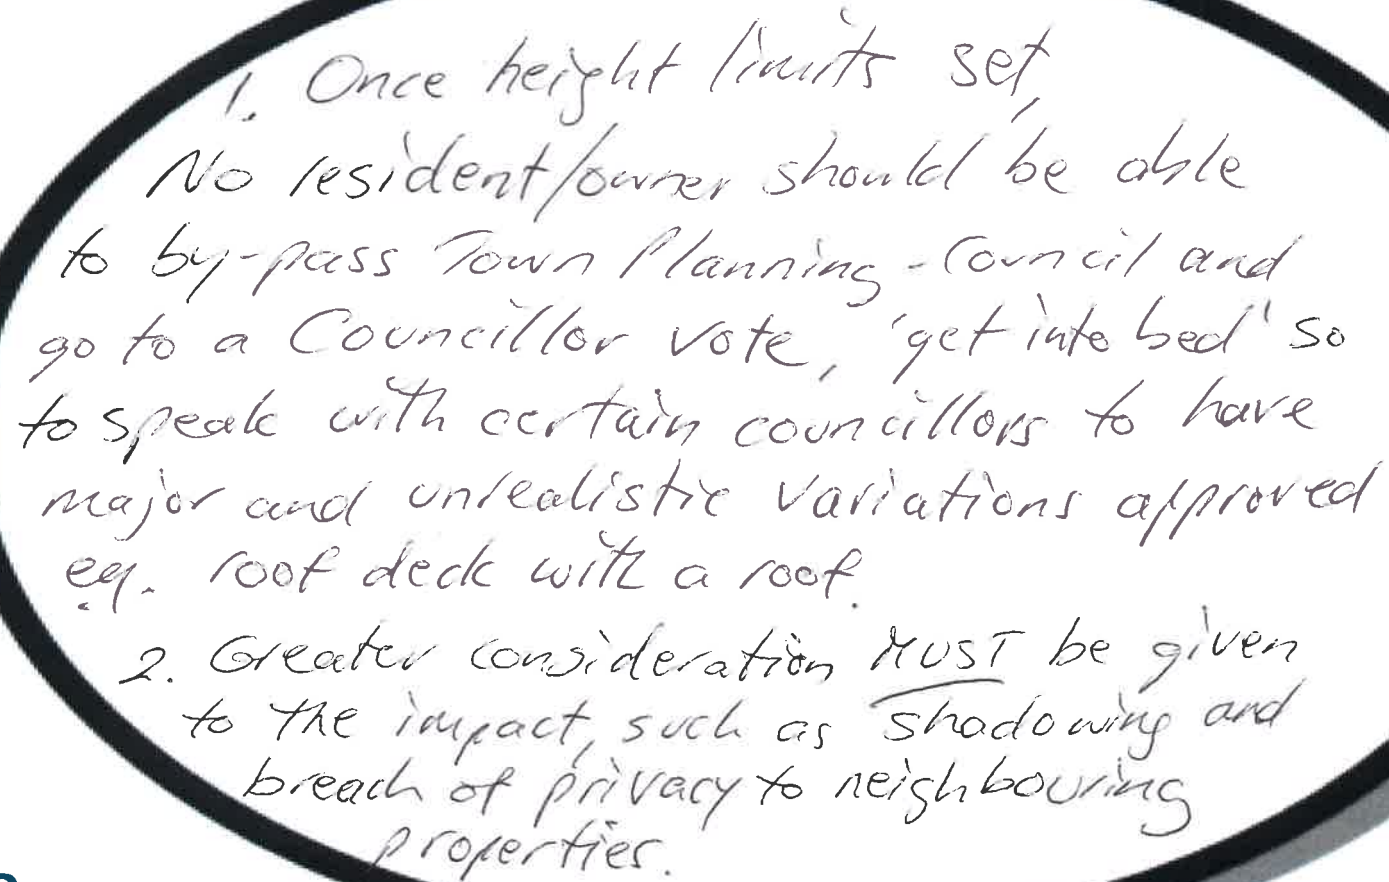 1. Once height limits set,
No resident/owner should be able
to by-pass Town Planning - Council and
go to a Councillor vote, 'get into bed' so
to speak with certain councillors to have
major and unrealistic variations approved
eg. roof deck with a roof.
2. Greater consideration MUST be given
to the impact, such as shadowing and
breach of privacy to neighbouring
properties.